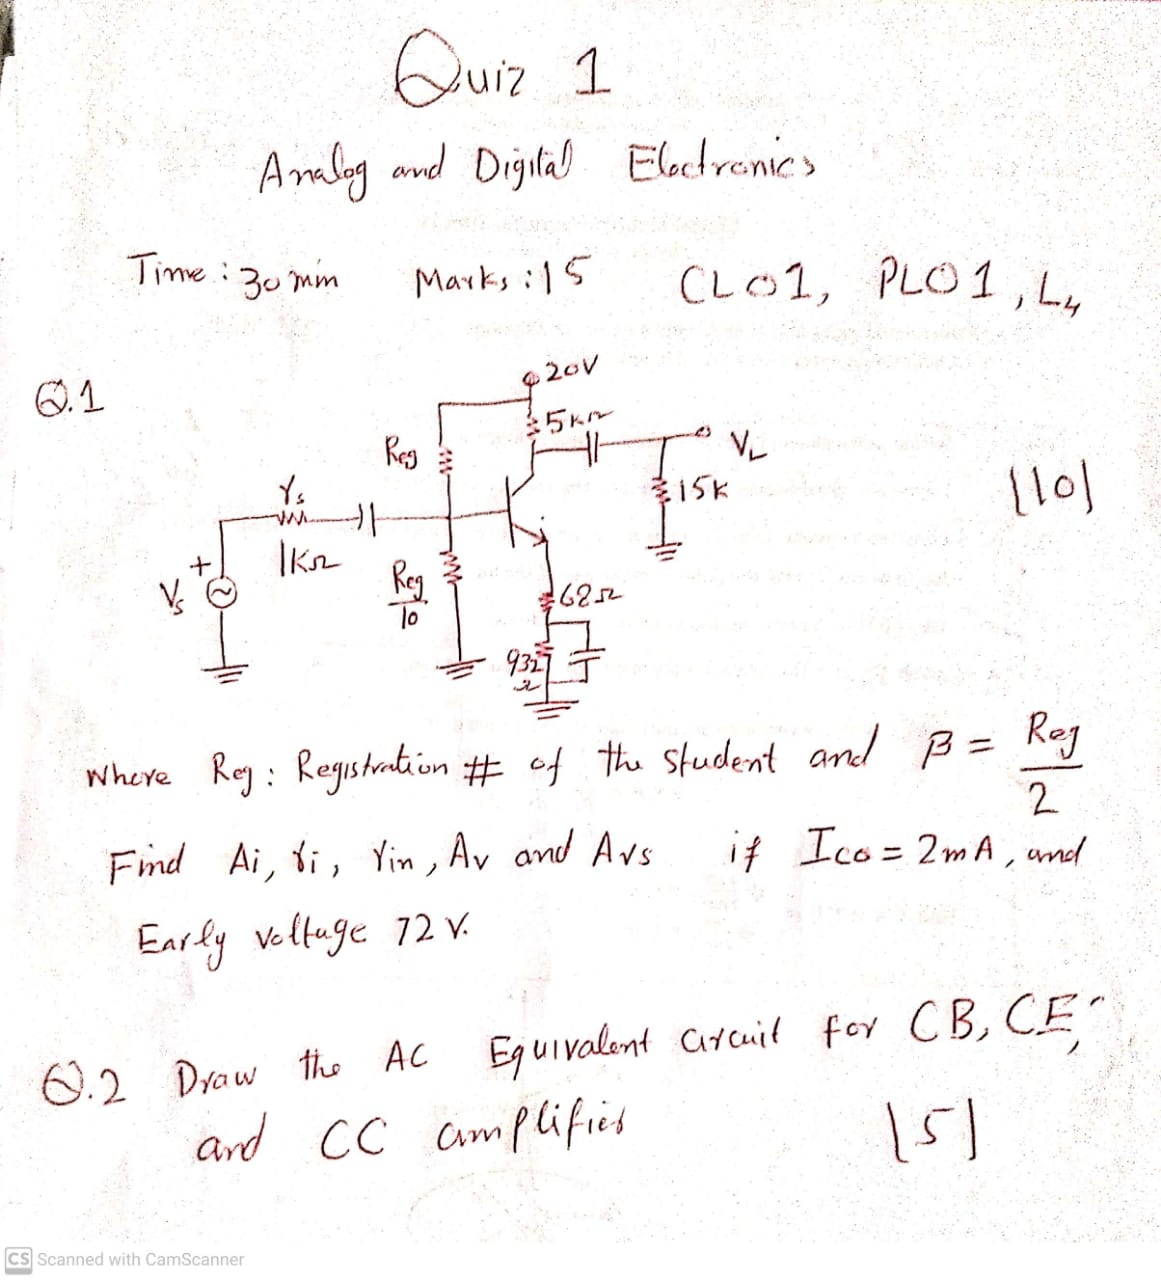 Quiz 1
Analog and Digital Electronics
Time : 30 min Marks : 15 CLO1, PLO1, L4
Q.1
20V
5kΩ
Reg
VL
15K
|10|
rs
1KΩ
+
Vs
Reg/10
62Ω
932Ω
Where Reg : Registration # of the student and β = Reg/2
Find Ai, ri, rin, Av and Avs if Ico = 2mA, and
Early voltage 72 V.
Q.2 Draw the AC Equivalent circuit for CB, CE,
and CC amplifier
|5|
CS Scanned with CamScanner